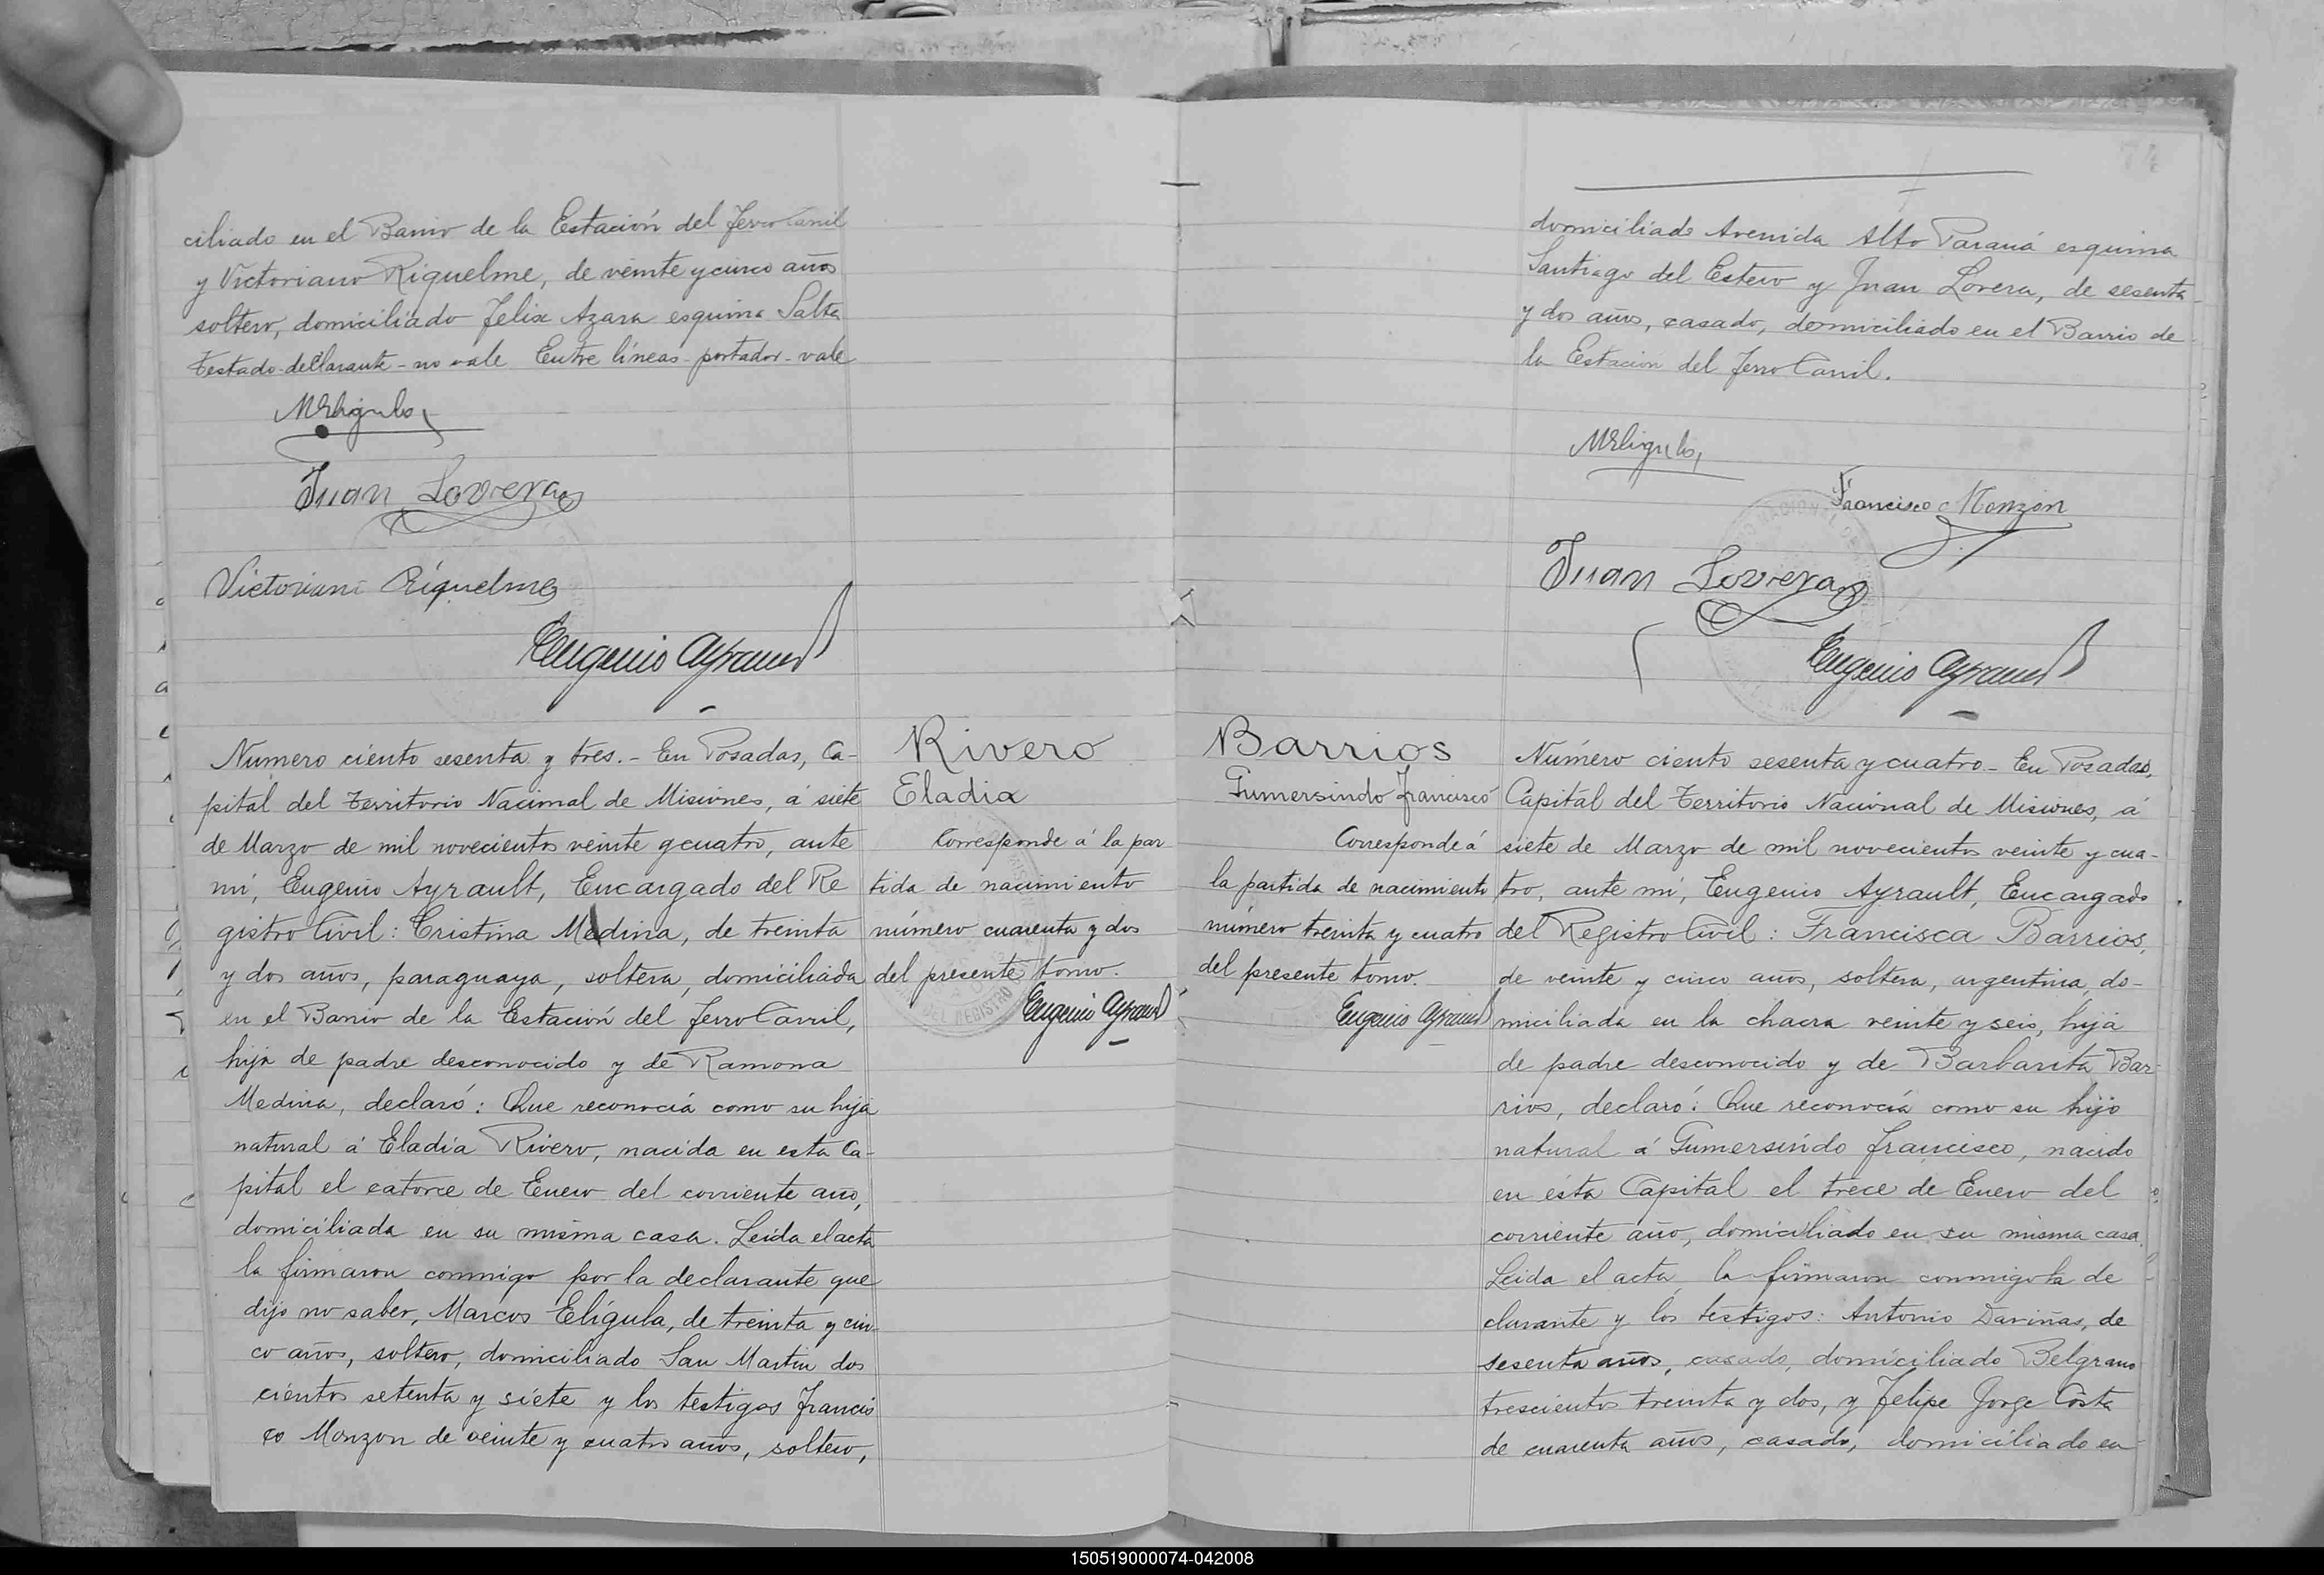 ciliado en el Barrio de la Estación del Ferro Carril
y Victoriano Riquelme, de veinte y cinco años
soltero, domiciliado Felix Azara esquina Salta
Testado-declarante-no vale Entre líneas-portador-vale
MEligula
Juan Lovera
Victoriano Riquelme
Eugenio Ayrault
Numero ciento sesenta y tres.- En Posadas, Ca-
pital del Territorio Nacional de Misiones, á siete
de Marzo de mil novecientos veinte y cuatro, ante
mí, Eugenio Ayrault, Encargado del Re
gistro Civil: Cristina Medina, de treinta
y dos años, paraguaya, soltera, domiciliada
en el Barrio de la Estación del Ferro Carril,
hija de padre desconocido y de Ramona
Medina, declaró: Que reconocía como su hija
natural á Eladia Rivero, nacida en esta Ca-
pital el catorce de Enero del corriente año,
domiciliada en su misma casa. Leída el acta
la firmaron conmigo por la declarante que
dijo no saber, Marcos Elígula, de treinta y cin-
co años, soltero, domiciliado San Martin dos
cientos setenta y siete y los testigos Francis
co Monzon de veinte y cuatro años, soltero,
Rivero
Eladia
Corresponde á la par
tida de nacimiento
número cuarenta y dos
del presente tomo.
Eugenio Ayrault
74
domiciliado Avenida Alto Paraná esquina
Santiago del Estero y Juan Lovera, de sesenta
y dos años, casado, domiciliado en el Barrio de
la Estación del Ferro Carril.
MEligula
Francisco Monzon
Juan Lovera
Eugenio Ayrault
Barrios
Gumersindo Francisco
Corresponde á
la partida de nacimiento
número treinta y cuatro
del presente tomo.
Eugenio Ayrault
Número ciento sesenta y cuatro- En Posadas,
Capital del Territorio Nacional de Misiones, á
siete de Marzo de mil novecientos veinte y cua-
tro, ante mí, Eugenio Ayrault, Encargado
del Registro Civil: Francisca Barrios,
de veinte y cinco años, soltera, argentina, do-
miciliada en la chacra veinte y seis, hija
de padre desconocido y de Barbarita Bar-
rios, declaró: Que reconocía como su hijo
natural á Gumersindo Francisco, nacido
en esta Capital el trece de Enero del
corriente año, domiciliado en su misma casa.
Leida el acta, la firmaron conmigo la de
clarante y los testigos: Antonio Dariñas, de
sesenta años, casado, domiciliado Belgrano
trescientos treinta y dos, y Felipe Jorge Costa
de cuarenta años, casado, domiciliado en
150519000074-042008